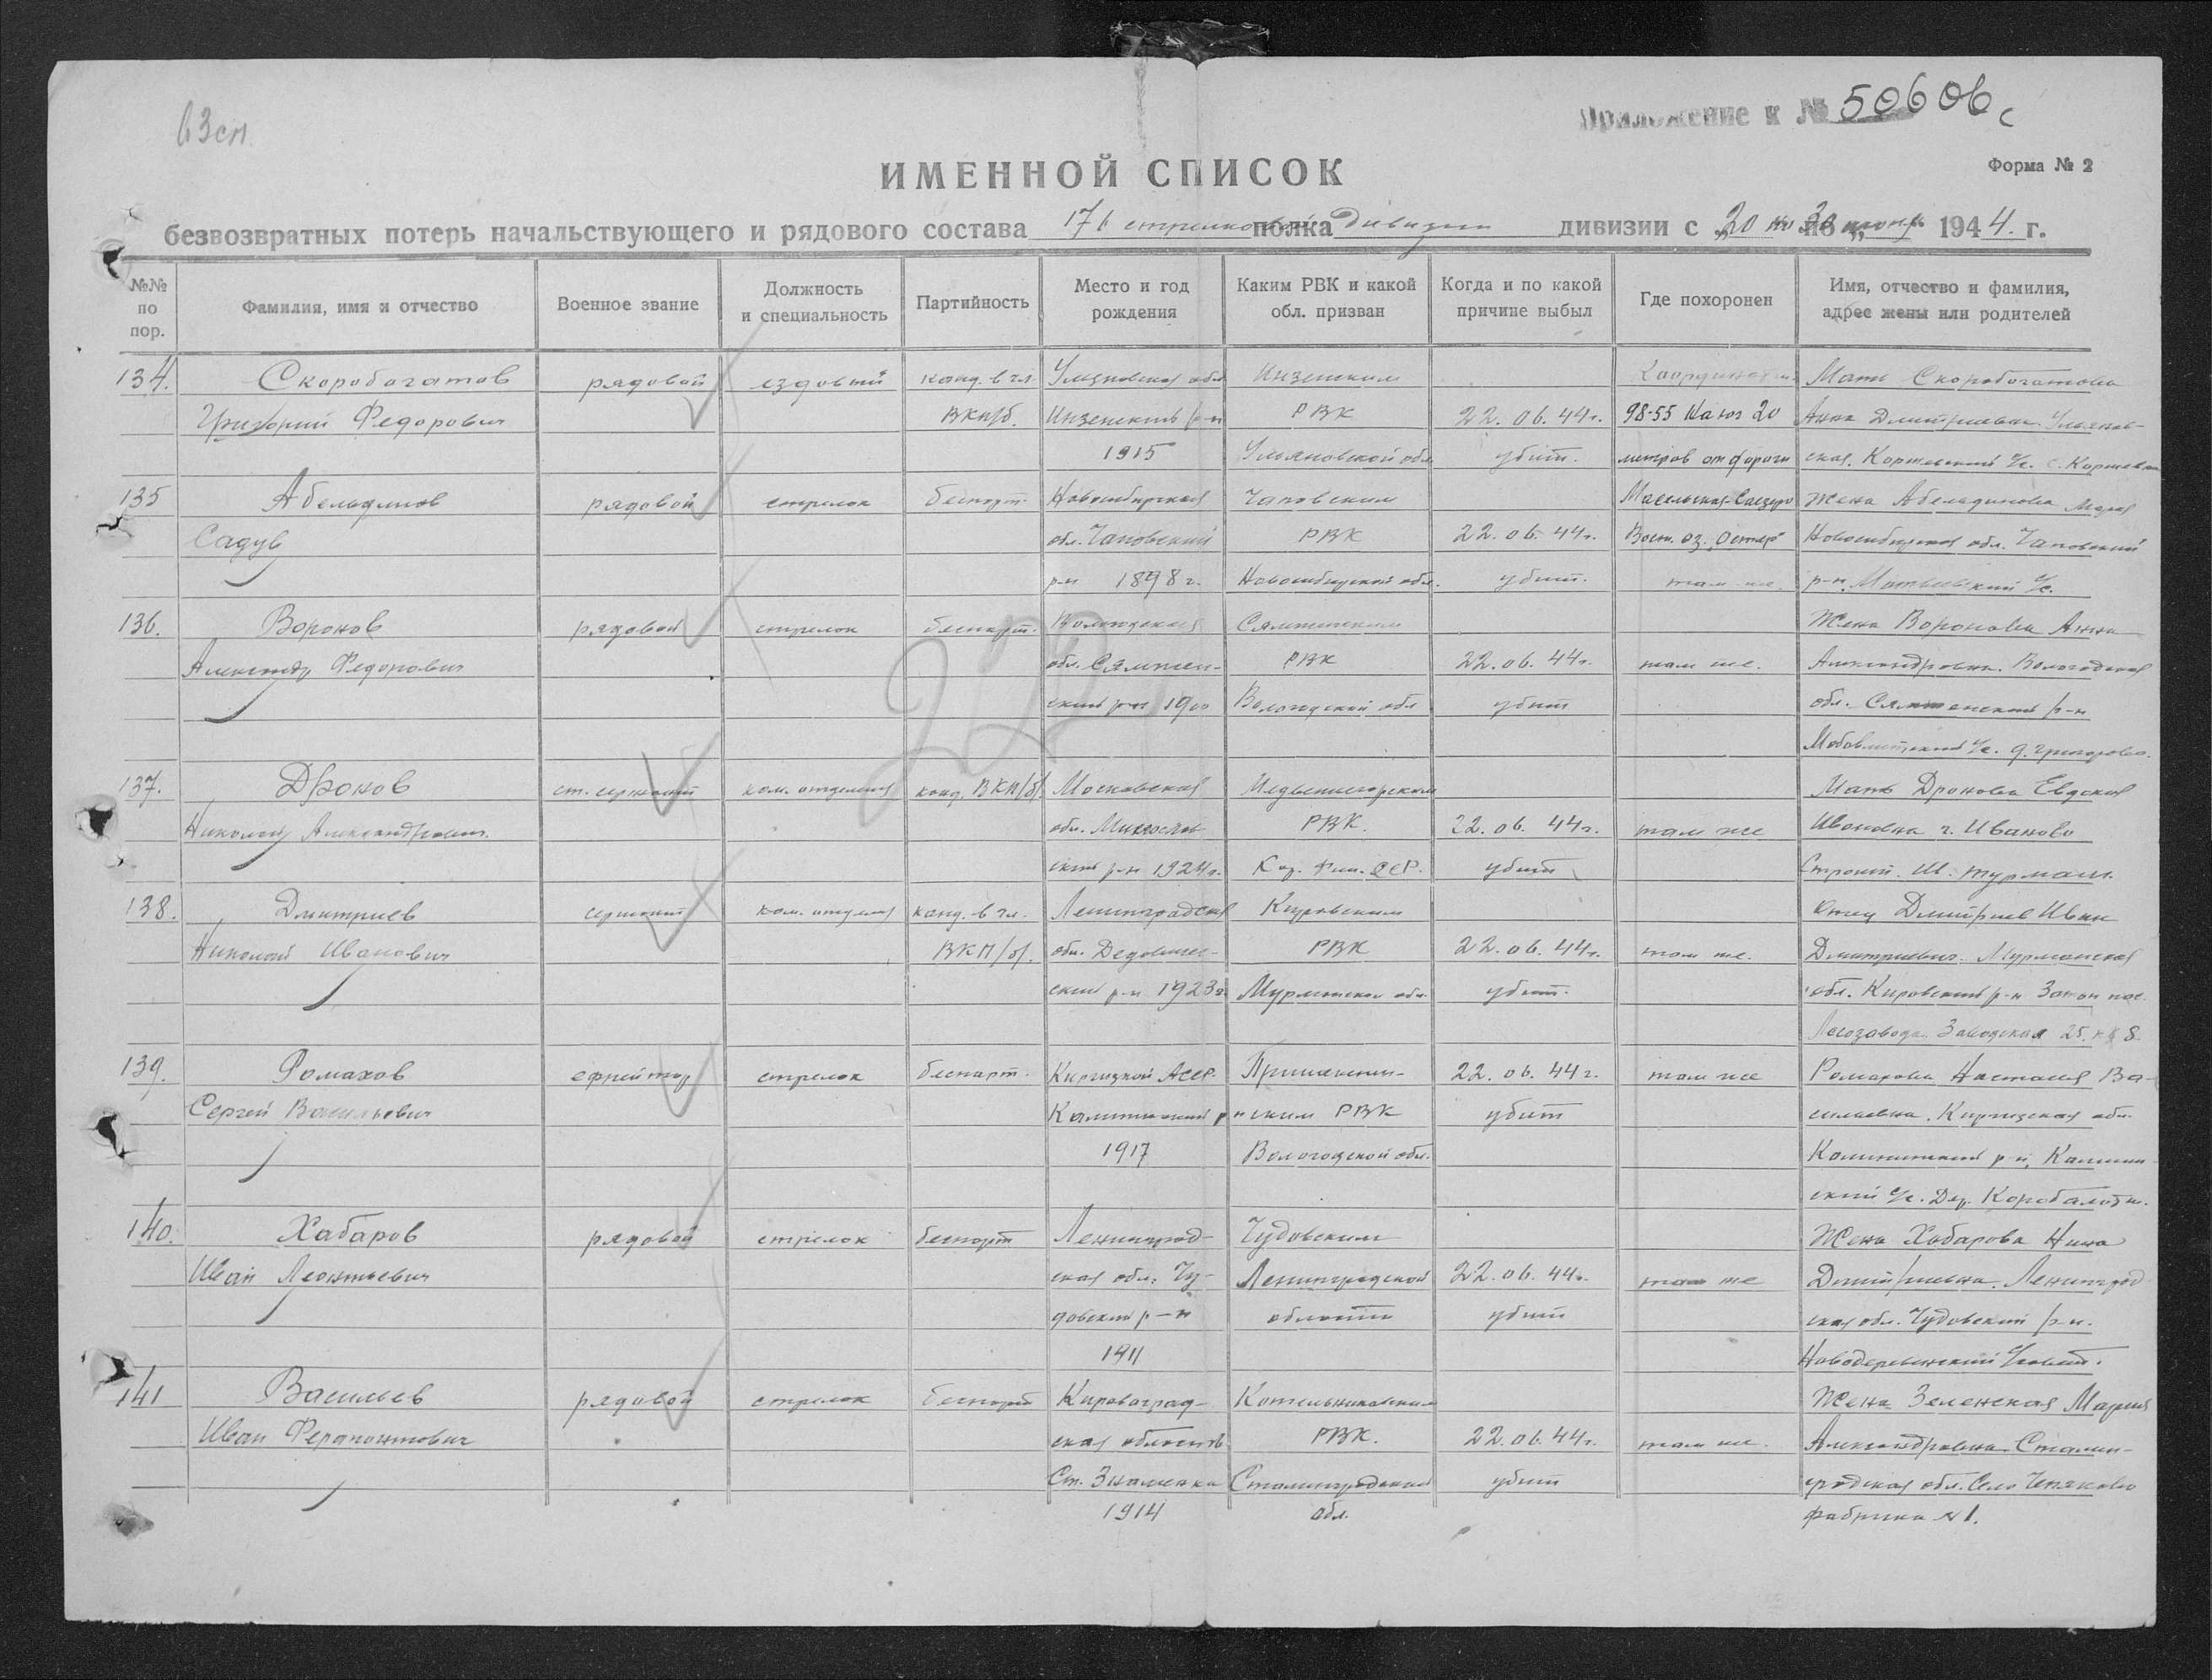 63сп
Приложение к № 50606с
ИМЕННОЙ СПИСОК
Форма № 2
безвозвратных потерь начальствующего и рядового состава 176 стрелковой полка дивизии дивизии с 20 по 30 июня 1944 г.
№№ по пор.
Фамилия, имя и отчество
Военное звание
Должность и специальность
Партийность
Место и год рождения
Каким РВК и какой обл. призван
Когда и по какой причине выбыл
Где похоронен
Имя, отчество и фамилия, адрес жены или родителей
134. Скоробогатов рядовой ездовый канд. в чл. Ульяновская обл. Инзенским Координаты Мать Скоробогатова
Григорий Федорович ВКП/б. Инзенский р-н РВК 22.06.44г. 98-55 На юг 20 Анна Дмитриевна Ульянов-
1915 Ульяновской обл убит. метров от дороги ская,
135 Абельдинов рядовой стрелок беспарт. Новосибирская Чановским Масельская- Жена Абельдинова
Садув обл. Чановский РВК 22.06.44г. Вост. оз. Новосибирская обл. Чановский
р-н 1898г. Новосибирской обл. убит. там же. р-н. с/с.
136. Воронов рядовой стрелок беспарт. Вологодская Сямженским Жена Воронова Анна
Александр Федорович обл. Сямжен- РВК 22.06.44г. там же. Александровна. Вологодская
ский р-н 1900 Вологодской обл убит обл. Сямженский р-н
с/с. д. Григорово.
137. Дронов ст. сержант ком. отделения канд. ВКП/б/. Московская Медвежьегорским Мать Дронова Евдокия
Николай Александрович. обл. РВК. 22.06.44г. там же Ивановна г. Иваново
ский р-н 1924г. Кар. Фин. ССР. убит
138. Дмитриев сержант ком. отделения канд. в чл. Ленинградская Кировским Отец Дмитриев Иван
Николай Иванович ВКП/б/. обл. Дедович- РВК 22.06.44г. там же. Дмитриевич. Мурманская
ский р-н 1923г. Мурманская обл. убит. обл. Кировский р-н
Лесозавода. Заводская 25. 8.
139. Ромахов ефрейтор стрелок беспарт. Киргизкой АССР. 22.06.44г. там же Ромахова Настасия Ва-
Сергей Васильевич Калининский р-н ским РВК убит сильевна. Киргизская обл.
1917 Вологодской обл. Калининский р-н, Калинин-
ский с/с. Дер.
140. Хабаров рядовой стрелок беспарт Ленинград- Чудовским Жена Хабарова Нина
Иван Леонтьевич ская обл. Чу- Ленинградской 22.06.44г. там же Дмитриевна. Ленинград-
довский р-н области убит ская обл. Чудовский р-н.
1911 Новодеревенский с/совет.
141 Васильев рядовой стрелок беспарт Кировоград- Котельниковским Жена Зеленская Мария
Иван Ферапонтович ская область РВК. 22.06.44г. там же. Александровна Сталин-
Ст. Знаменка Сталинградской убит градская обл. Село
1914 обл. фабрика № 1.